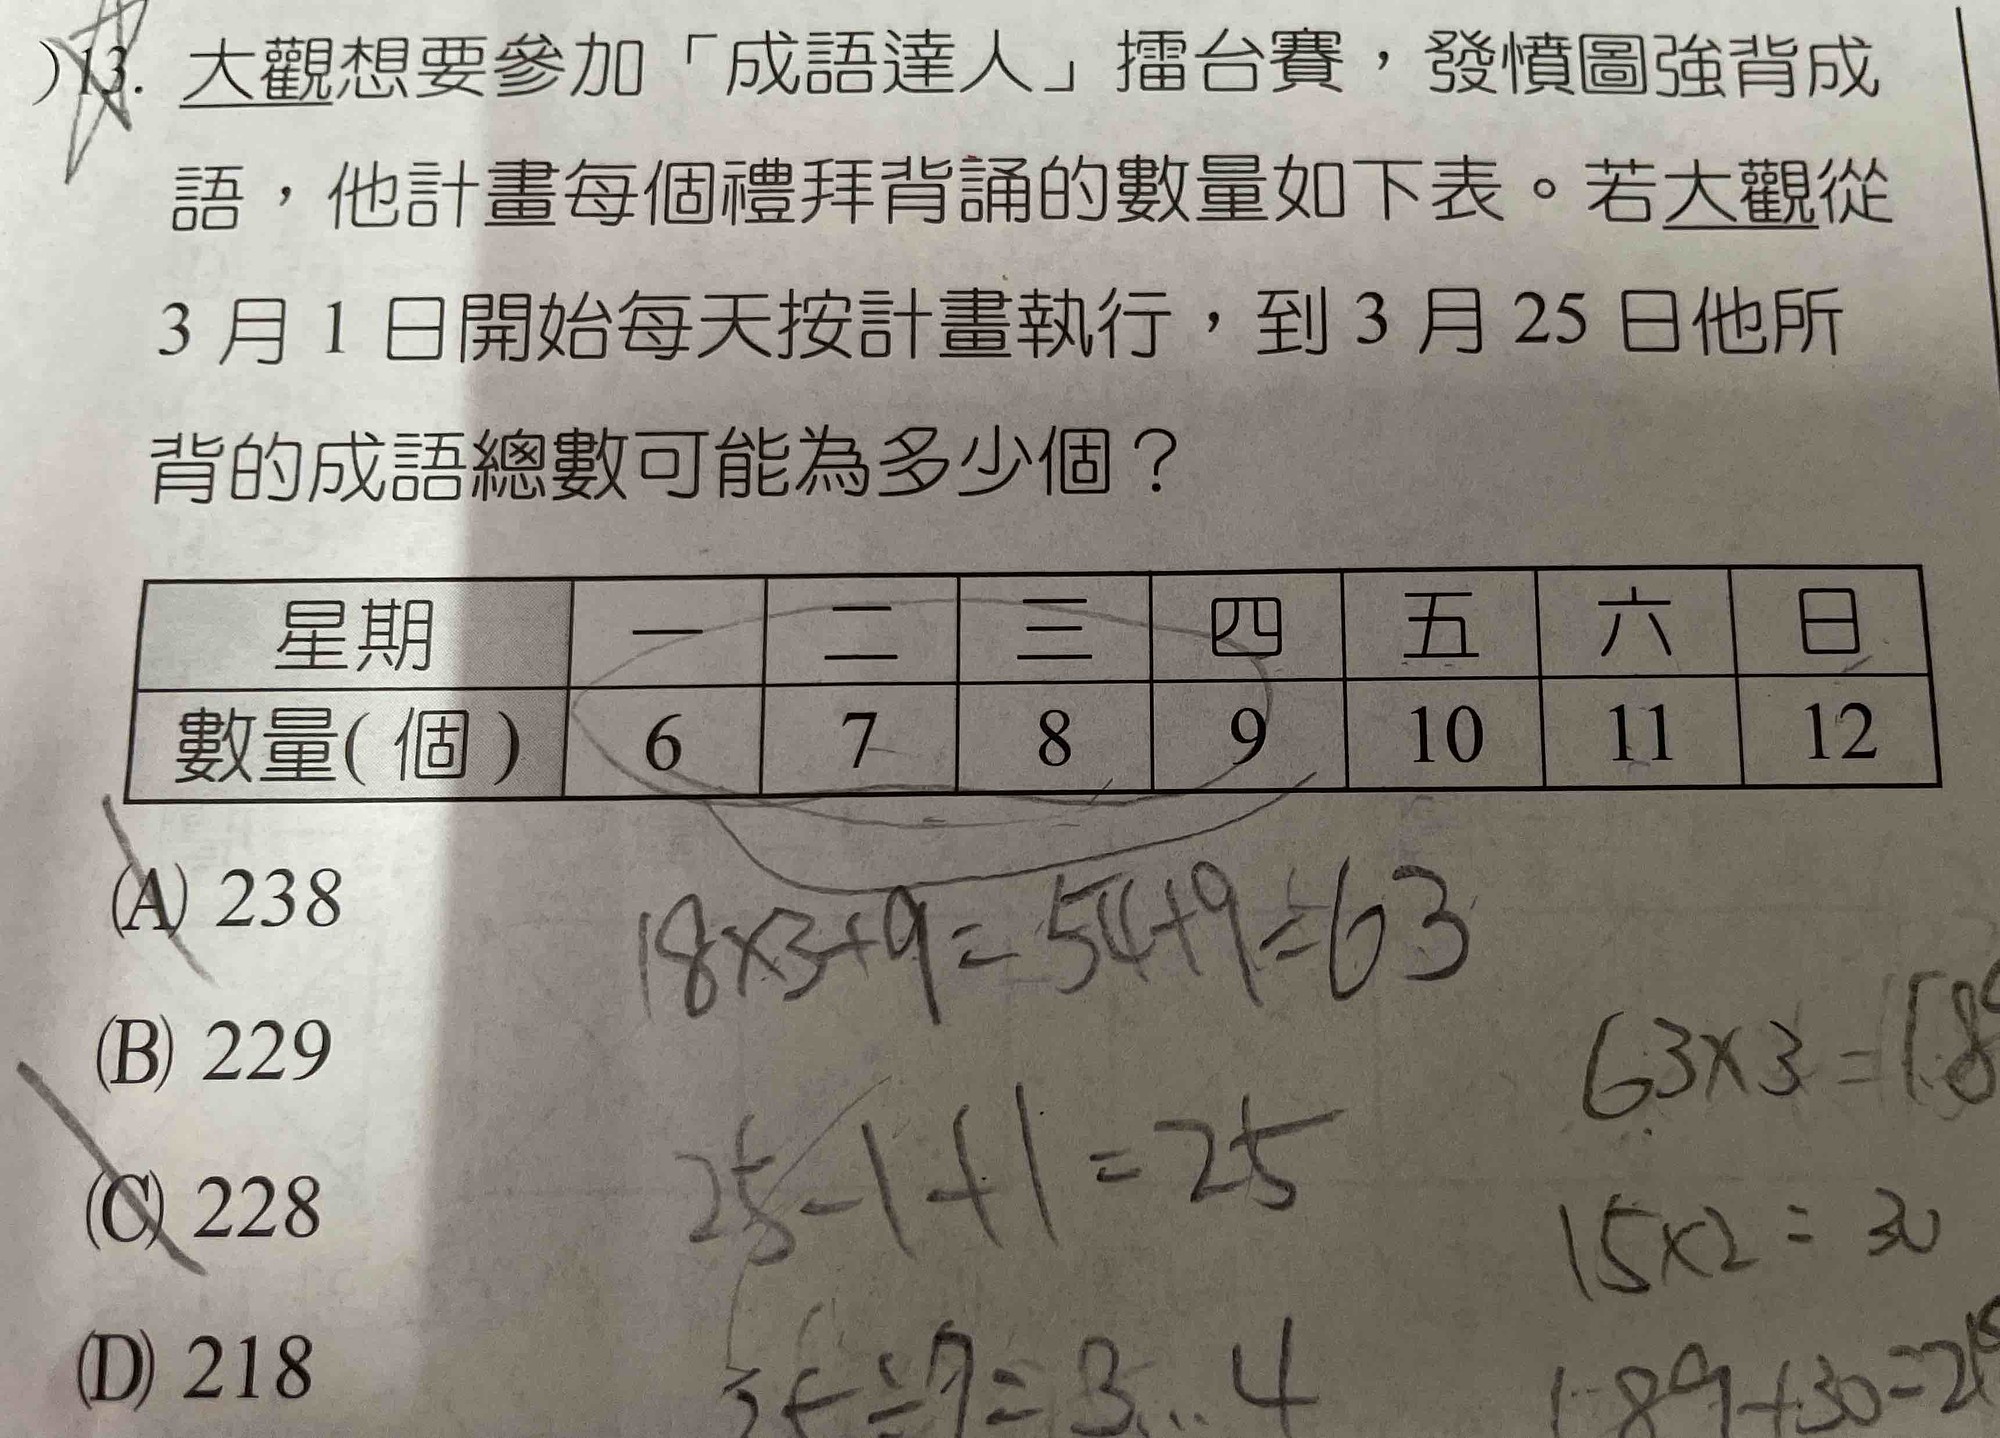 )13. 大觀想要參加「成語達人」擂台賽，發憤圖強背成
語，他計畫每個禮拜背誦的數量如下表。若大觀從
3 月 1 日開始每天按計畫執行，到 3 月 25 日他所
背的成語總數可能為多少個？
星期 一 二 三 四 五 六 日
數量( 個 ) 6 7 8 9 10 11 12
(A) 238
18×3+9=54+9=63
(B) 229
63×3=18
25-1+1=25
(C) 228
15×2=30
(D) 218
÷7=3...4
189+30=21